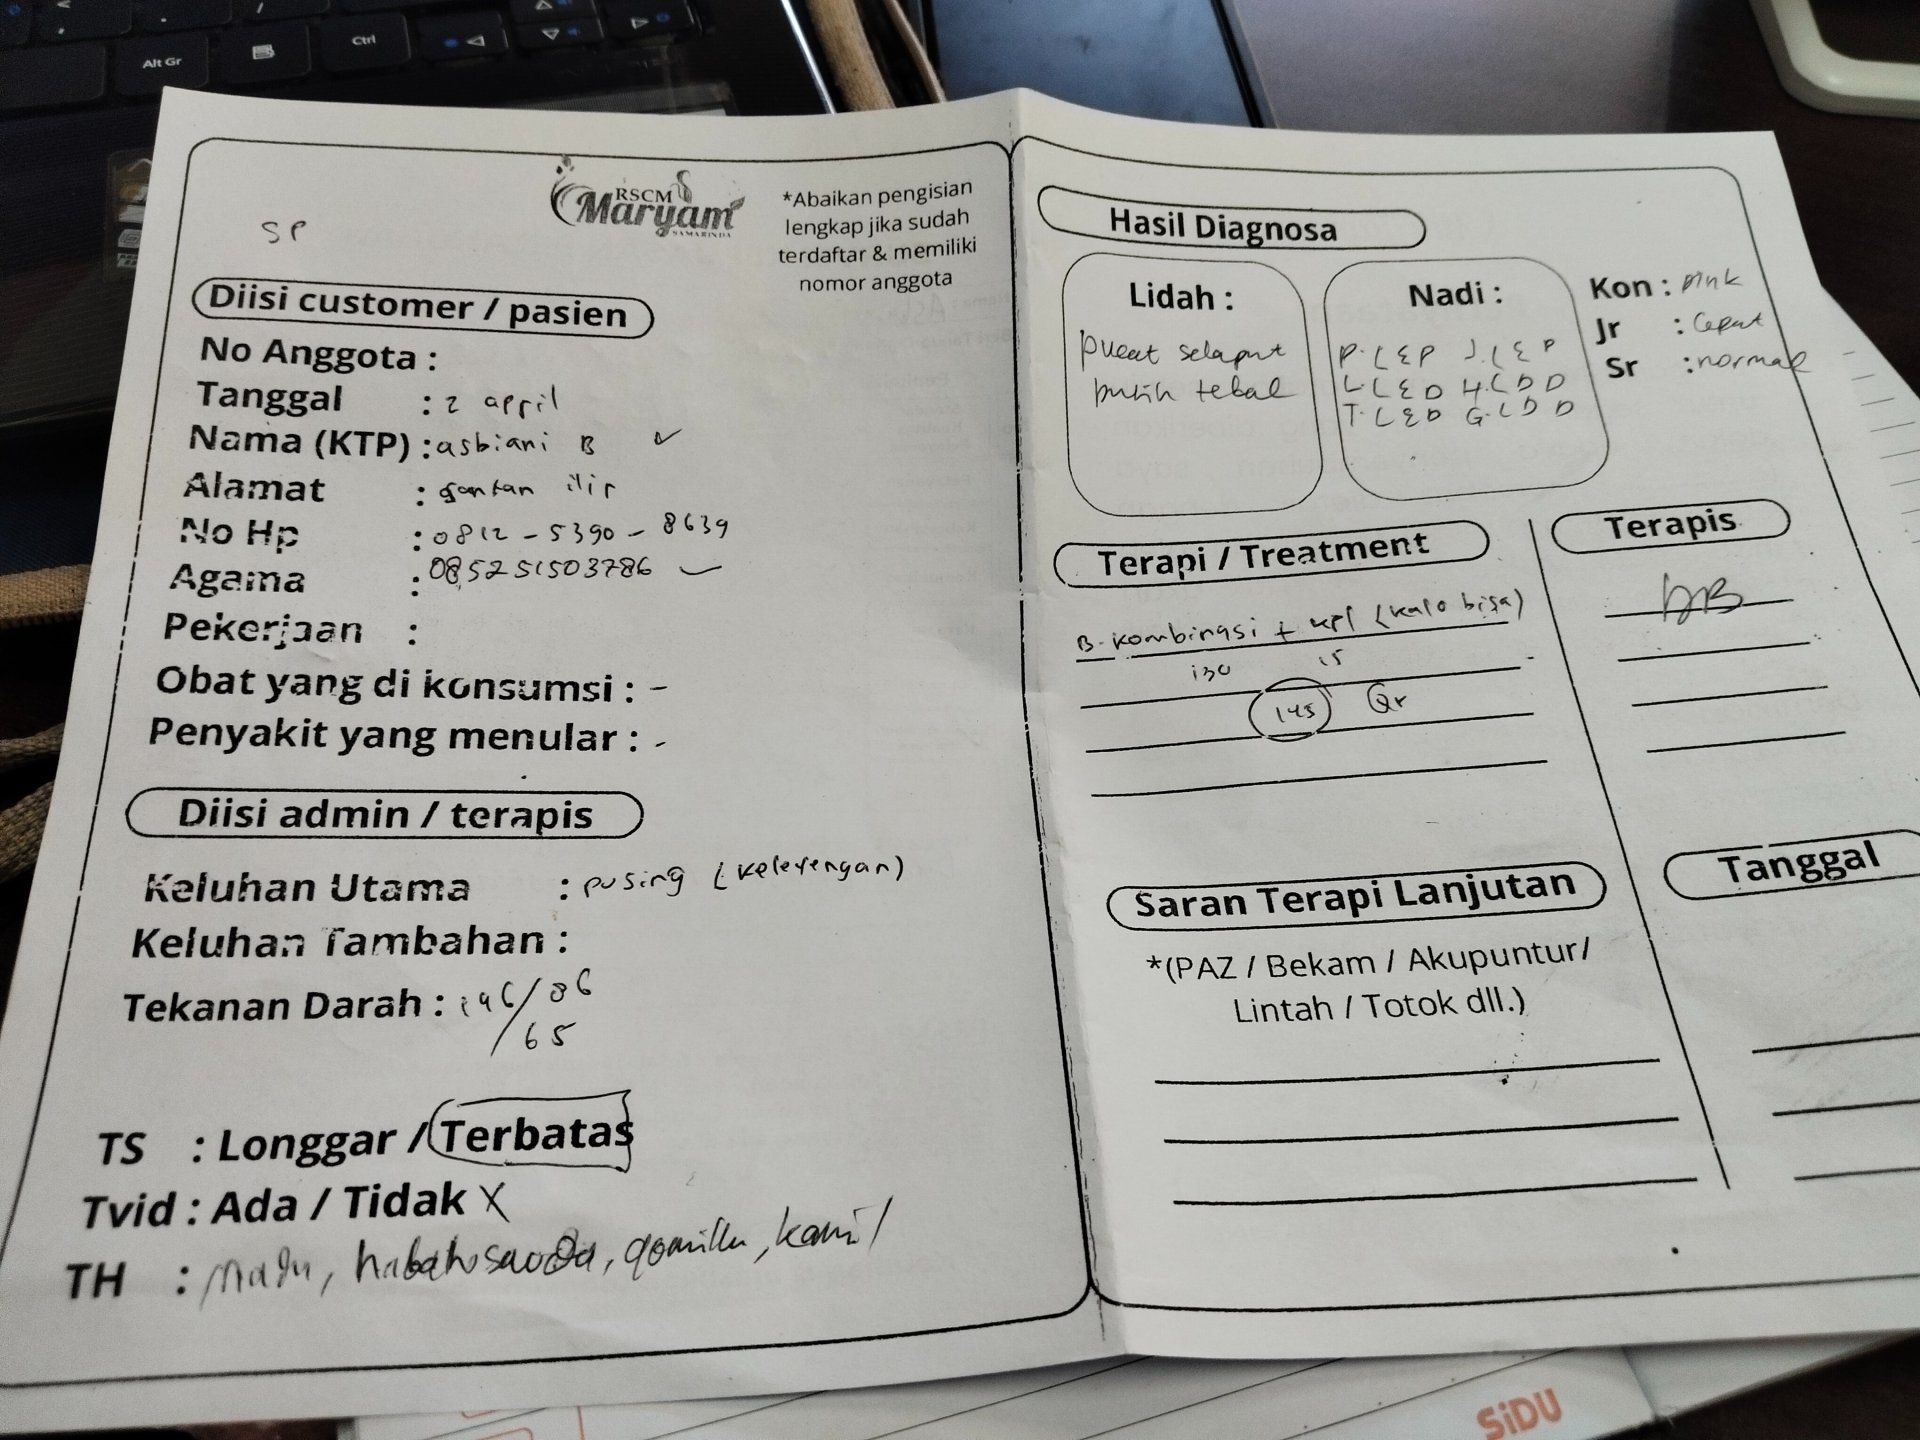 SP
RSCM
Maryam
SAMARINDA
*Abaikan pengisian
lengkap jika sudah
terdaftar & memiliki
nomor anggota
Diisi customer / pasien
No Anggota :
Tanggal : 2 april
Nama (KTP) : asbiani B ✓
Alamat : ilir
No Hp : 0812 - 5390 - 8639
Agama : 085251503786
Pekerjaan :
Obat yang di konsumsi : -
Penyakit yang menular : -
Diisi admin / terapis
Keluhan Utama : pusing (keleyengan)
Keluhan Tambahan :
Tekanan Darah : 146/86
/65
TS : Longgar / Terbatas
Tvid : Ada / Tidak X
TH : Madu, habatusauda, qomillu, kamil
Hasil Diagnosa
Lidah :
pucat selaput
putih tebal
Nadi :
P. L E P J. L E P
L. L E D H. L D D
T. L E D G. L D D
Kon : pink
Jr : cepat
Sr : normal
Terapi / Treatment
B. kombinasi + kpl (kalo bisa)
130 15
145 Qr
Terapis
Saran Terapi Lanjutan
*(PAZ / Bekam / Akupuntur/
Lintah / Totok dll.)
Tanggal
SiDU
Alt Gr
Ctrl